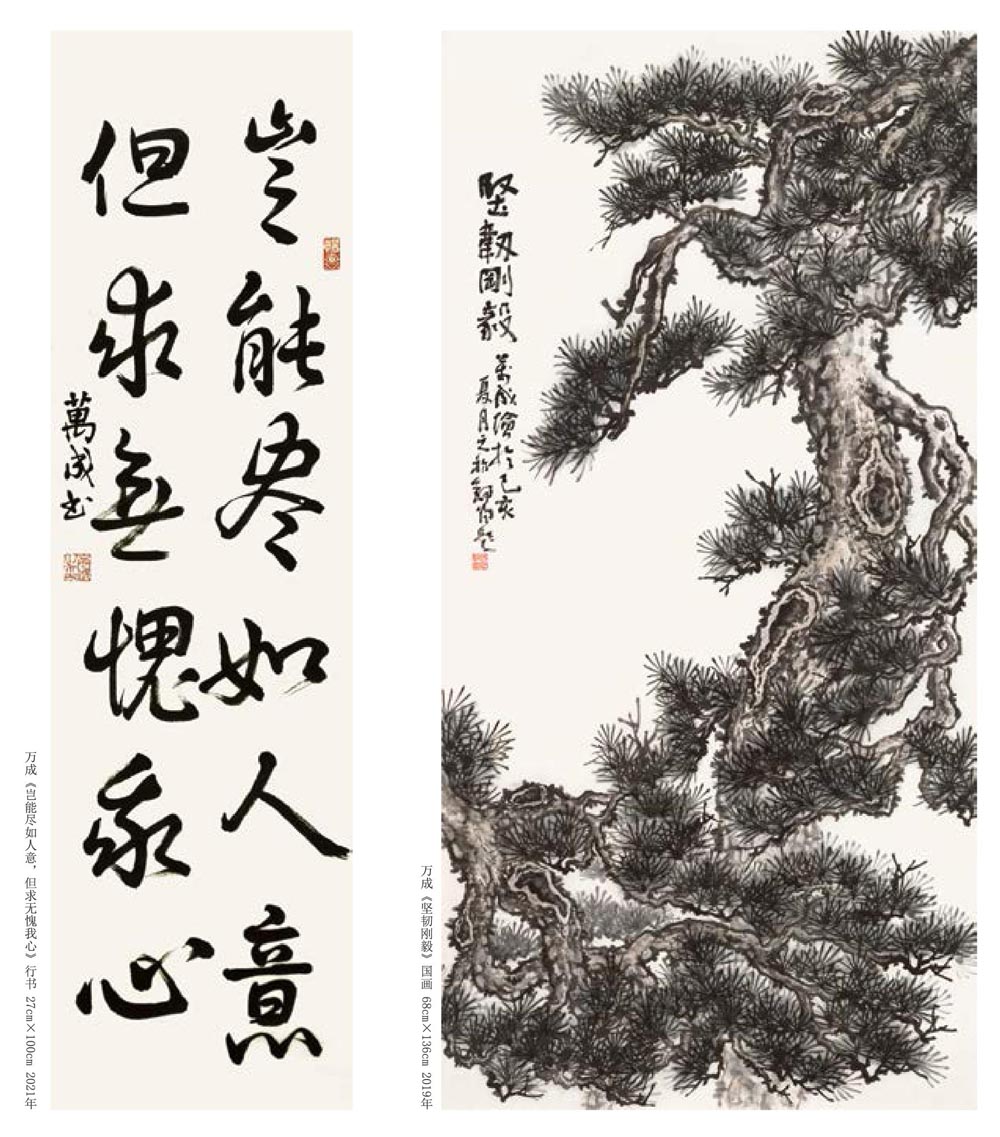 岂能尽如人意
但求無愧我心
萬成书
万成《岂能尽如人意，但求无愧我心》行书 27cm×100cm 2021年
堅韌剛毅
萬成繪於己亥
夏月之
万成《坚韧刚毅》国画 68cm×136cm 2019年